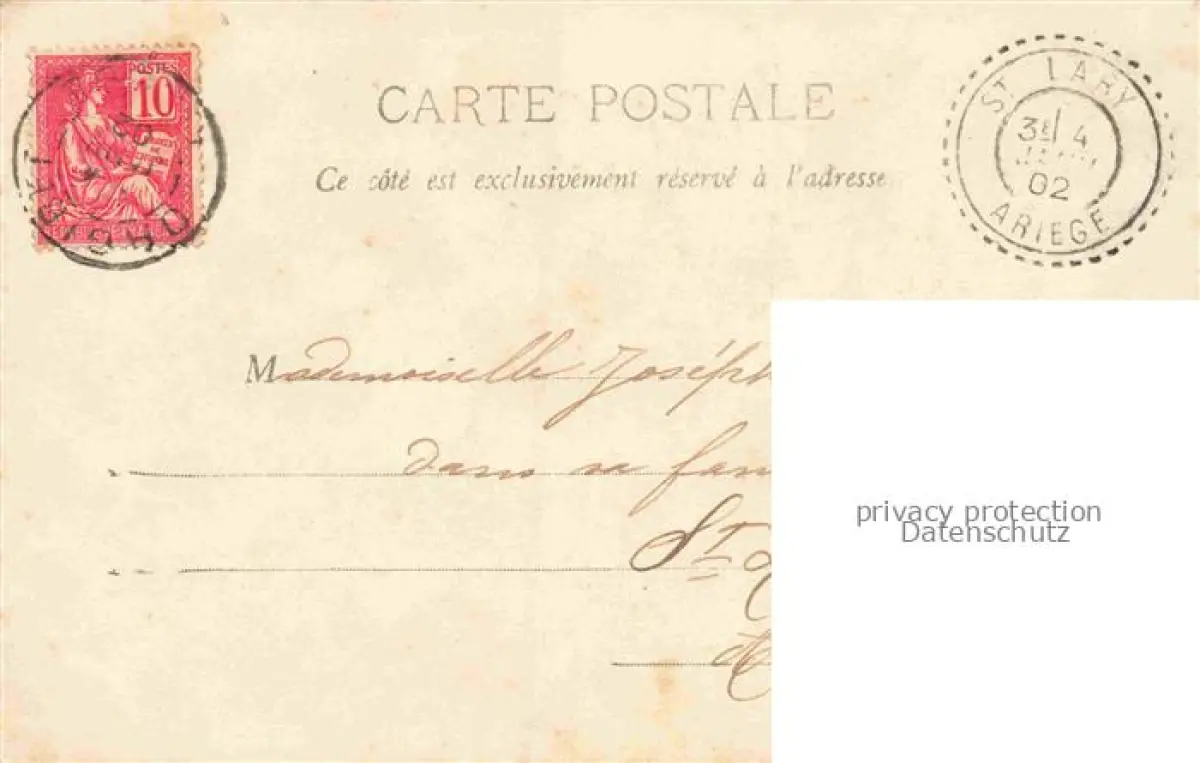 POSTES
10
CARTE POSTALE
Ce côté est exclusivement réservé à l'adresse
ST LARY
3E 4
02
ARIEGE
Mademoiselle Joséph
dans sa fam
St
privacy protection
Datenschutz